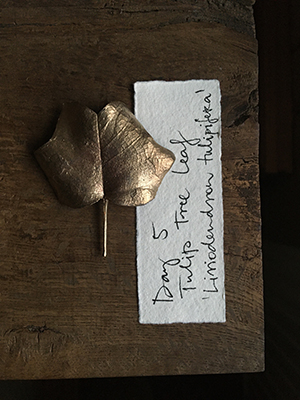 Day 5
Tulip Tree Leaf
'Liriodendron tulipifera'